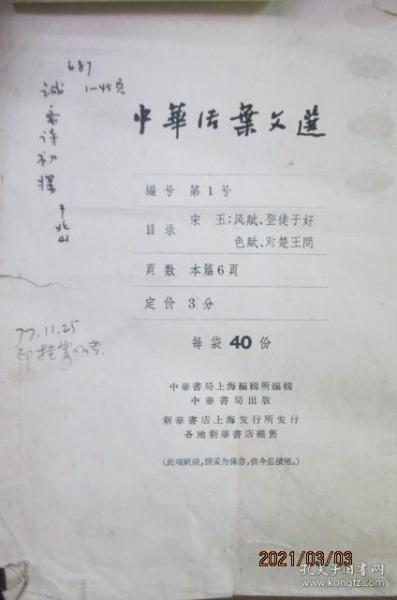 687
1—45页
诚斋诗初探
于北山
中華活葉文選
編号 第1号
目录 宋玉:风赋、登徒子好
色赋、对楚王問
頁数 本篇6頁
定价 3分
每袋 40 份
77.11.25
中華書局上海編輯所編輯
中華書局出版
新華書店上海发行所发行
各地新華書店經售
(此項紙袋,請妥为保存,供今后續用。)
2021/03/03
孔夫子旧书网
www.kongfz.com